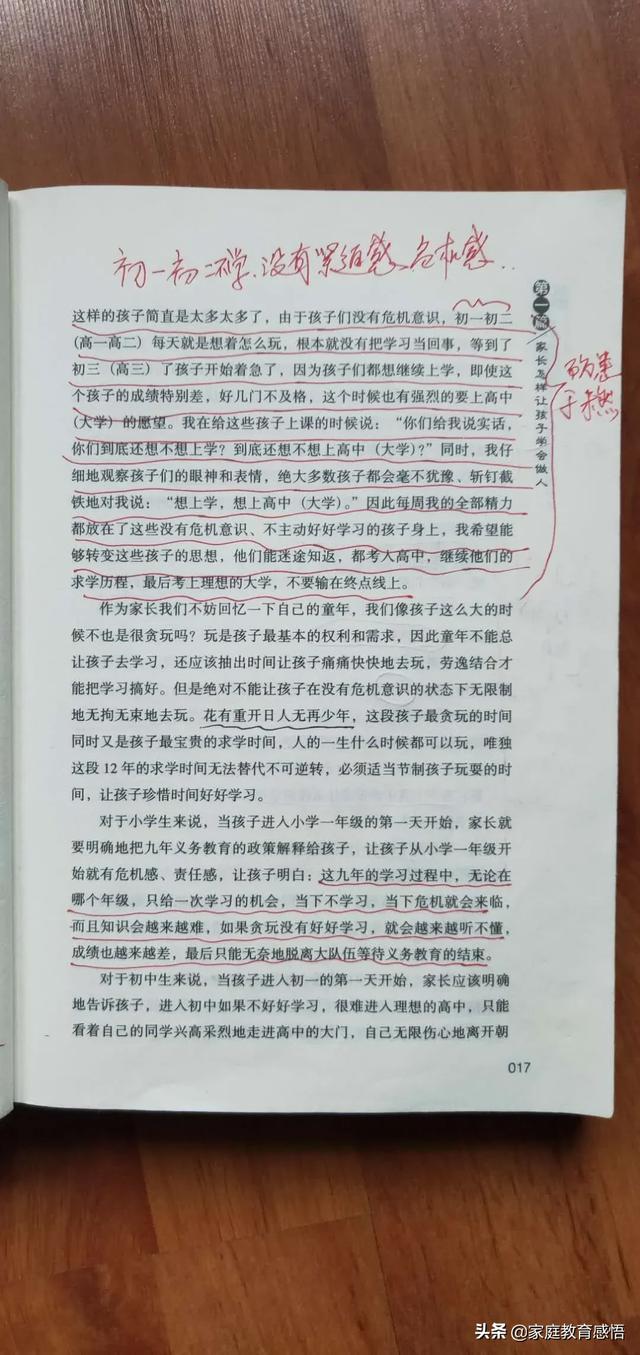 初一初二学.没有紧迫感、危机感..
第一篇 家长怎样让孩子学会做人
防患
于未燃
这样的孩子简直是太多太多了，由于孩子们没有危机意识，初一初二
（高一高二）每天就是想着怎么玩，根本就没有把学习当回事，等到了
初三（高三）了孩子开始着急了，因为孩子们都想继续上学，即使这
个孩子的成绩特别差，好几门不及格，这个时候也有强烈的要上高中
（大学）的愿望。我在给这些孩子上课的时候说：“你们给我说实话，
你们到底还想不想上学？到底还想不想上高中（大学）？”同时，我仔
细地观察孩子们的眼神和表情，绝大多数孩子都会毫不犹豫、斩钉截
铁地对我说：“想上学，想上高中（大学）。”因此每周我的全部精力
都放在了这些没有危机意识、不主动好好学习的孩子身上，我希望能
够转变这些孩子的思想，他们能迷途知返，都考入高中，继续他们的
求学历程，最后考上理想的大学，不要输在终点线上。
作为家长我们不妨回忆一下自己的童年，我们像孩子这么大的时
候不也是很贪玩吗？玩是孩子最基本的权利和需求，因此童年不能总
让孩子去学习，还应该抽出时间让孩子痛痛快快地去玩，劳逸结合才
能把学习搞好。但是绝对不能让孩子在没有危机意识的状态下无限制
地无拘无束地去玩。花有重开日人无再少年，这段孩子最贪玩的时间
同时又是孩子最宝贵的求学时间，人的一生什么时候都可以玩，唯独
这段 12 年的求学时间无法替代不可逆转，必须适当节制孩子玩耍的时
间，让孩子珍惜时间好好学习。
对于小学生来说，当孩子进入小学一年级的第一天开始，家长就
要明确地把九年义务教育的政策解释给孩子，让孩子从小学一年级开
始就有危机感、责任感，让孩子明白：这九年的学习过程中，无论在
哪个年级，只给一次学习的机会，当下不学习，当下危机就会来临，
而且知识会越来越难，如果贪玩没有好好学习，就会越来越听不懂，
成绩也越来越差，最后只能无奈地脱离大队伍等待义务教育的结束。
对于初中生来说，当孩子进入初一的第一天开始，家长应该明确
地告诉孩子，进入初中如果不好好学习，很难进入理想的高中，只能
看着自己的同学兴高采烈地走进高中的大门，自己无限伤心地离开朝
017
头条 @家庭教育感悟